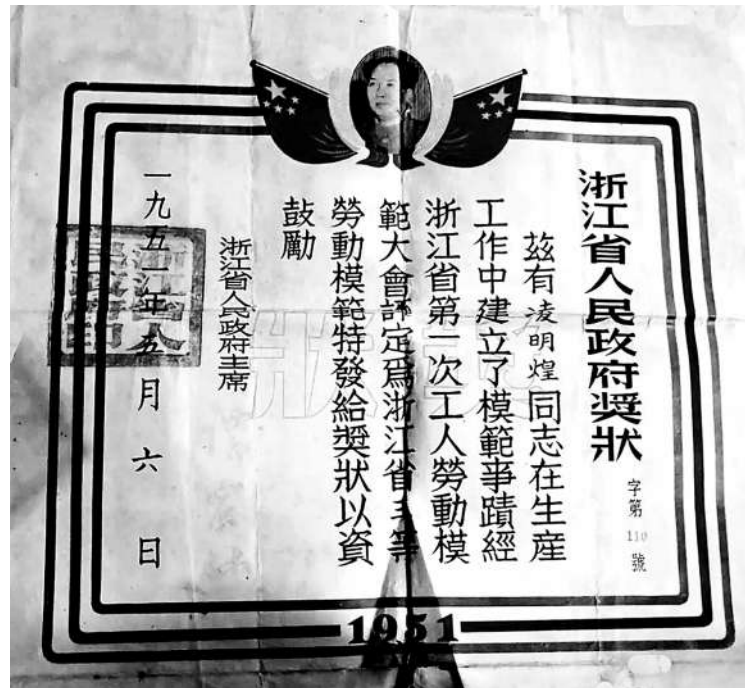 浙江省人民政府獎狀
字第110號
茲有凌明煌同志在生産
工作中建立了模範事蹟經
浙江省第一次工人勞動模
範大會評定爲浙江省 等
勞動模範特發給獎狀以資
鼓勵
浙江省人民政府主席
一九五一年五月六日
浙江省人民政府印
獎狀
1951